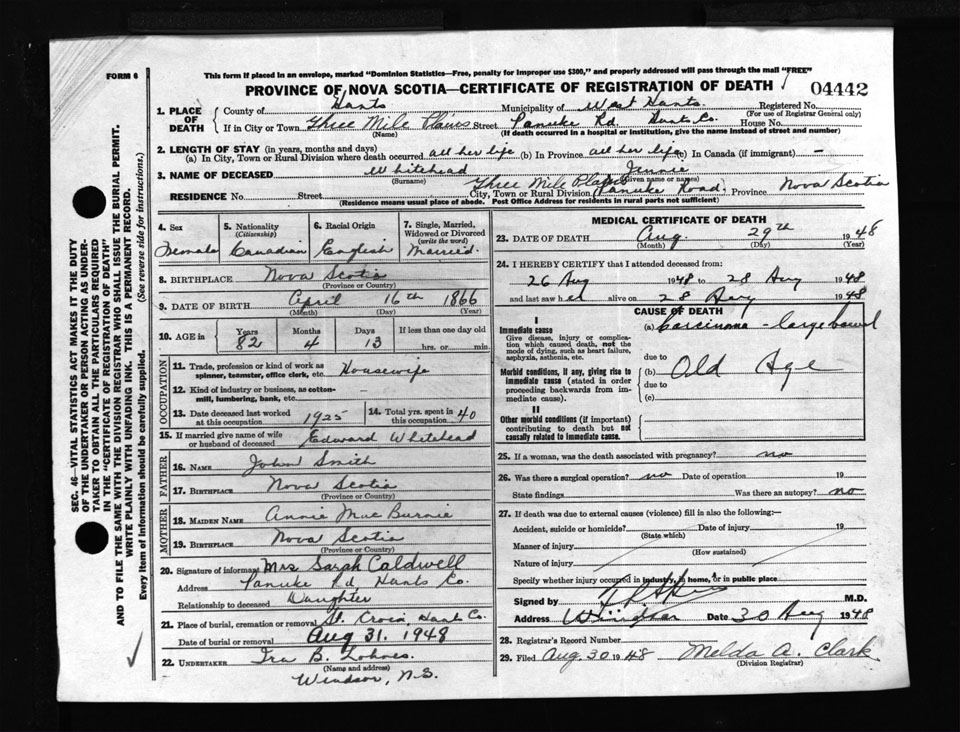 FORM 6
This form if placed in an envelope, marked "Dominion Statistics—Free, penalty for improper use $300," and properly addressed will pass through the mail "FREE"
PROVINCE OF NOVA SCOTIA—CERTIFICATE OF REGISTRATION OF DEATH
04442
1. PLACE OF DEATH
County of Hants Municipality of West Hants. Registered No.
(For use of Registrar General only)
If in City or Town Three Mile Plains Street Panuke Rd Hants Co. House No.
(Name) (If death occurred in a hospital or institution, give the name instead of street and number)
2. LENGTH OF STAY (in years, months and days)
(a) In City, Town or Rural Division where death occurred all her life (b) In Province all her life (c) In Canada (if immigrant) —
3. NAME OF DECEASED Whitehead Jennie
(Surname) (Given name or names)
RESIDENCE No. Street City, Town or Rural Division Three Mile Plains Panuke Road. Province Nova Scotia
(Residence means usual place of abode. Post Office Address for residents in rural parts not sufficient)
4. Sex Female
5. Nationality (Citizenship) Canadian
6. Racial Origin English
7. Single, Married, Widowed or Divorced (write the word) Married.
8. BIRTHPLACE Nova Scotia
(Province or Country)
9. DATE OF BIRTH April 16th 1866
(Month) (Day) (Year)
10. AGE in Years 82 Months 4 Days 13 If less than one day old hrs. or min.
OCCUPATION
11. Trade, profession or kind of work as spinner, teamster, office clerk, etc. Housewife
12. Kind of industry or business, as cotton-mill, lumbering, bank, etc.
13. Date deceased last worked at this occupation 1925
14. Total yrs. spent in this occupation 40
15. If married give name of wife or husband of deceased Edward Whitehead
FATHER
16. NAME John Smith
17. BIRTHPLACE Nova Scotia
(Province or Country)
MOTHER
18. MAIDEN NAME Annie MacBurnie
19. BIRTHPLACE Nova Scotia
(Province or Country)
20. Signature of informant Mrs Sarah Caldwell
Address Panuke Rd Hants Co.
Relationship to deceased Daughter
21. Place of burial, cremation or removal St. Croix, Hants Co.
Date of burial or removal Aug 31. 1948
22. UNDERTAKER Ira B. Lohnes.
(Name and address)
Windsor, N.S.
MEDICAL CERTIFICATE OF DEATH
23. DATE OF DEATH Aug. 29th 1948
(Month) (Day) (Year)
24. I HEREBY CERTIFY that I attended deceased from:
26 Aug 1948 to 28 Aug 1948
and last saw her alive on 28 Aug 1948
CAUSE OF DEATH
I
Immediate cause
Give disease, injury or complication which caused death, not the mode of dying, such as heart failure, asphyxia, asthenia, etc.
(a) Carcinoma - large bowel
due to
Morbid conditions, if any, giving rise to immediate cause (stated in order proceeding backwards from immediate cause).
(b) Old Age
due to
(c)
II
Other morbid conditions (if important) contributing to death but not causally related to immediate cause.
25. If a woman, was the death associated with pregnancy? no
26. Was there a surgical operation? no Date of operation 19
State findings Was there an autopsy? no
27. If death was due to external causes (violence) fill in also the following:—
Accident, suicide or homicide? Date of injury 19
(State which)
Manner of injury
(How sustained)
Nature of injury
Specify whether injury occurred in industry, in home, or in public place
Signed by M.D.
Address Windsor Date 30 Aug 1948
28. Registrar's Record Number
29. Filed Aug. 30 1948 Melda A. Clark
(Division Registrar)
SEC. 46—VITAL STATISTICS ACT MAKES IT THE DUTY
OF THE UNDERTAKER OR PERSON ACTING AS UNDER-
TAKER TO OBTAIN ALL THE PARTICULARS REQUIRED
IN THE "CERTIFICATE OF REGISTRATION OF DEATH"
AND TO FILE THE SAME WITH THE DIVISION REGISTRAR WHO SHALL ISSUE THE BURIAL PERMIT.
WRITE PLAINLY WITH UNFADING INK. THIS IS A PERMANENT RECORD.
Every item of information should be carefully supplied. (See reverse side for instructions.)